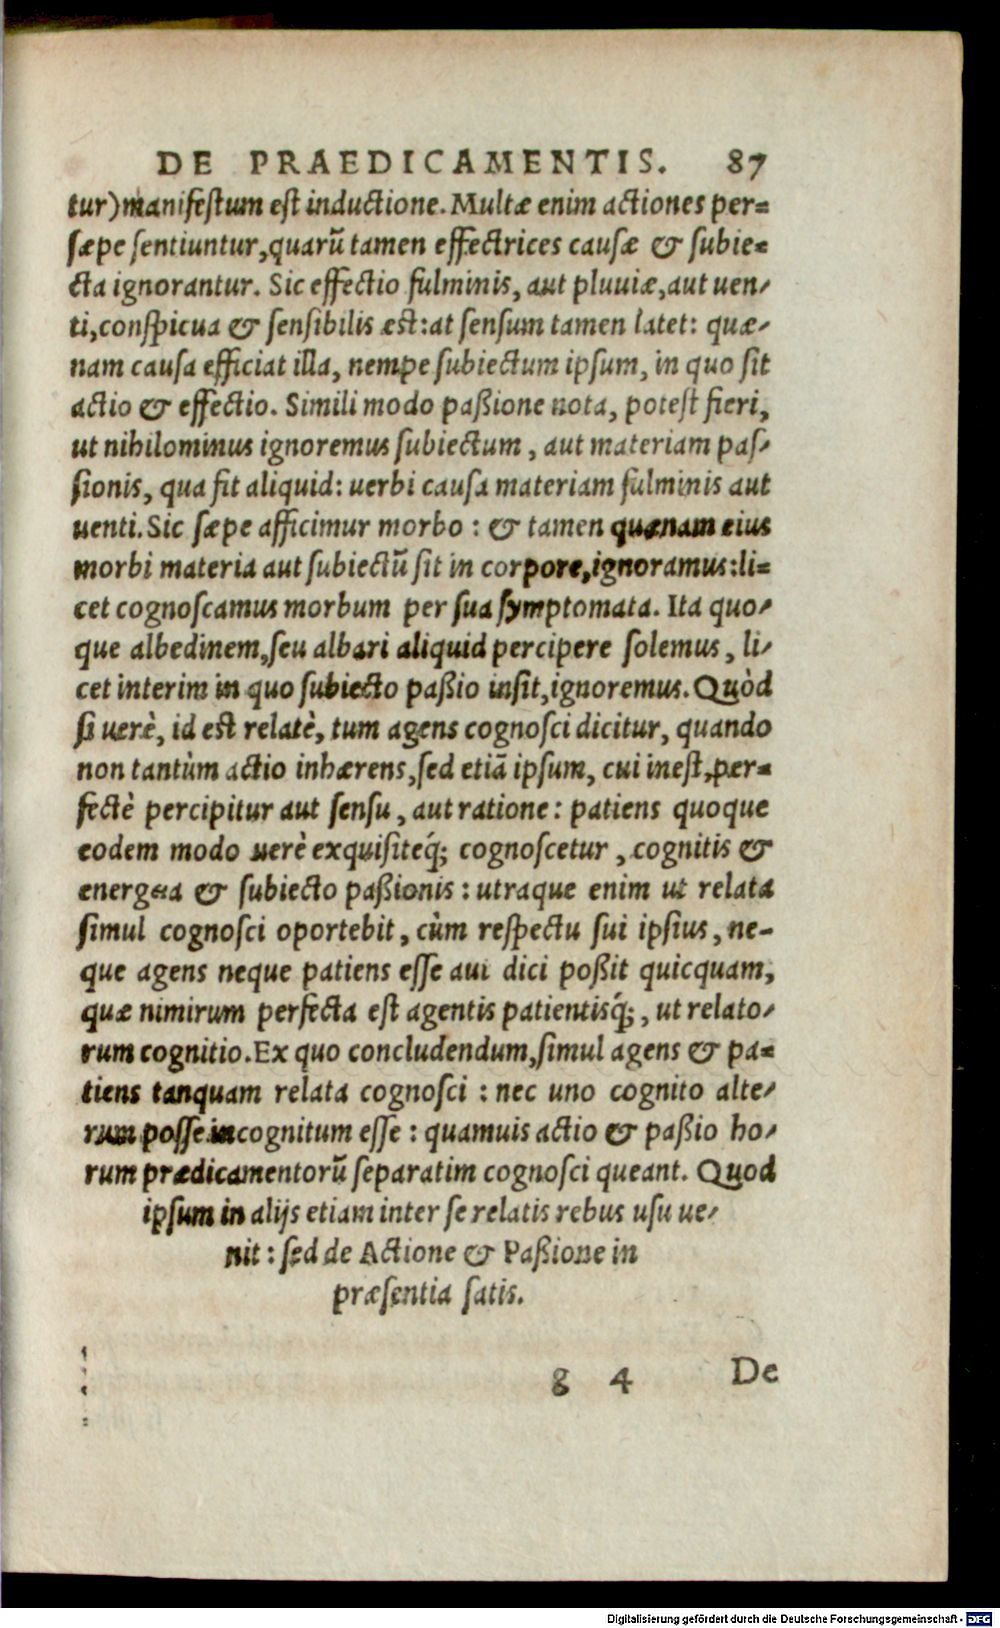 DE PRAEDICAMENTIS. 87
tur) manifestum est inductione. Multæ enim actiones per=
sæpe sentiuntur, quarũ tamen effectrices causæ & subie=
cta ignorantur. Sic effectio fulminis, aut pluuiæ, aut uen-
ti, conspicua & sensibilis æst: at sensum tamen latet: quæ-
nam causa efficiat illa, nempe subiectum ipsum, in quo sit
actio & effectio. Simili modo paßione nota, potest fieri,
ut nihilominus ignoremus subiectum, aut materiam pas-
sionis, qua fit aliquid: uerbi causa materiam fulminis aut
uenti. Sic sæpe afficimur morbo: & tamen quænam eius
morbi materia aut subiectũ sit in corpore, ignoramus: li=
cet cognoscamus morbum per sua symptomata. Ita quo-
que albedinem, seu albari aliquid percipere solemus, li-
cet interim in quo subiecto paßio insit, ignoremus. Quòd
si uerè, id est relatè, tum agens cognosci dicitur, quando
non tantùm actio inhærens, sed etiã ipsum, cui inest, per=
fectè percipitur aut sensu, aut ratione: patiens quoque
eodem modo uerè exquisiteq́; cognoscetur, cognitis &
energeia & subiecto paßionis: utraque enim ut relata
simul cognosci oportebit, cùm respectu sui ipsius, ne-
que agens neque patiens esse aut dici poßit quicquam,
quæ nimirum perfecta est agentis patientisq́;, ut relato-
rum cognitio. Ex quo concludendum, simul agens & pa=
tiens tanquam relata cognosci: nec uno cognito alte-
rum posse incognitum esse: quamuis actio & paßio ho-
rum prædicamentorũ separatim cognosci queant. Quod
ipsum in alijs etiam inter se relatis rebus usu ue-
nit: sed de Actione & Paßione in
præsentia satis.
g 4 De
Digitalisierung gefördert durch die Deutsche Forschungsgemeinschaft - DFG